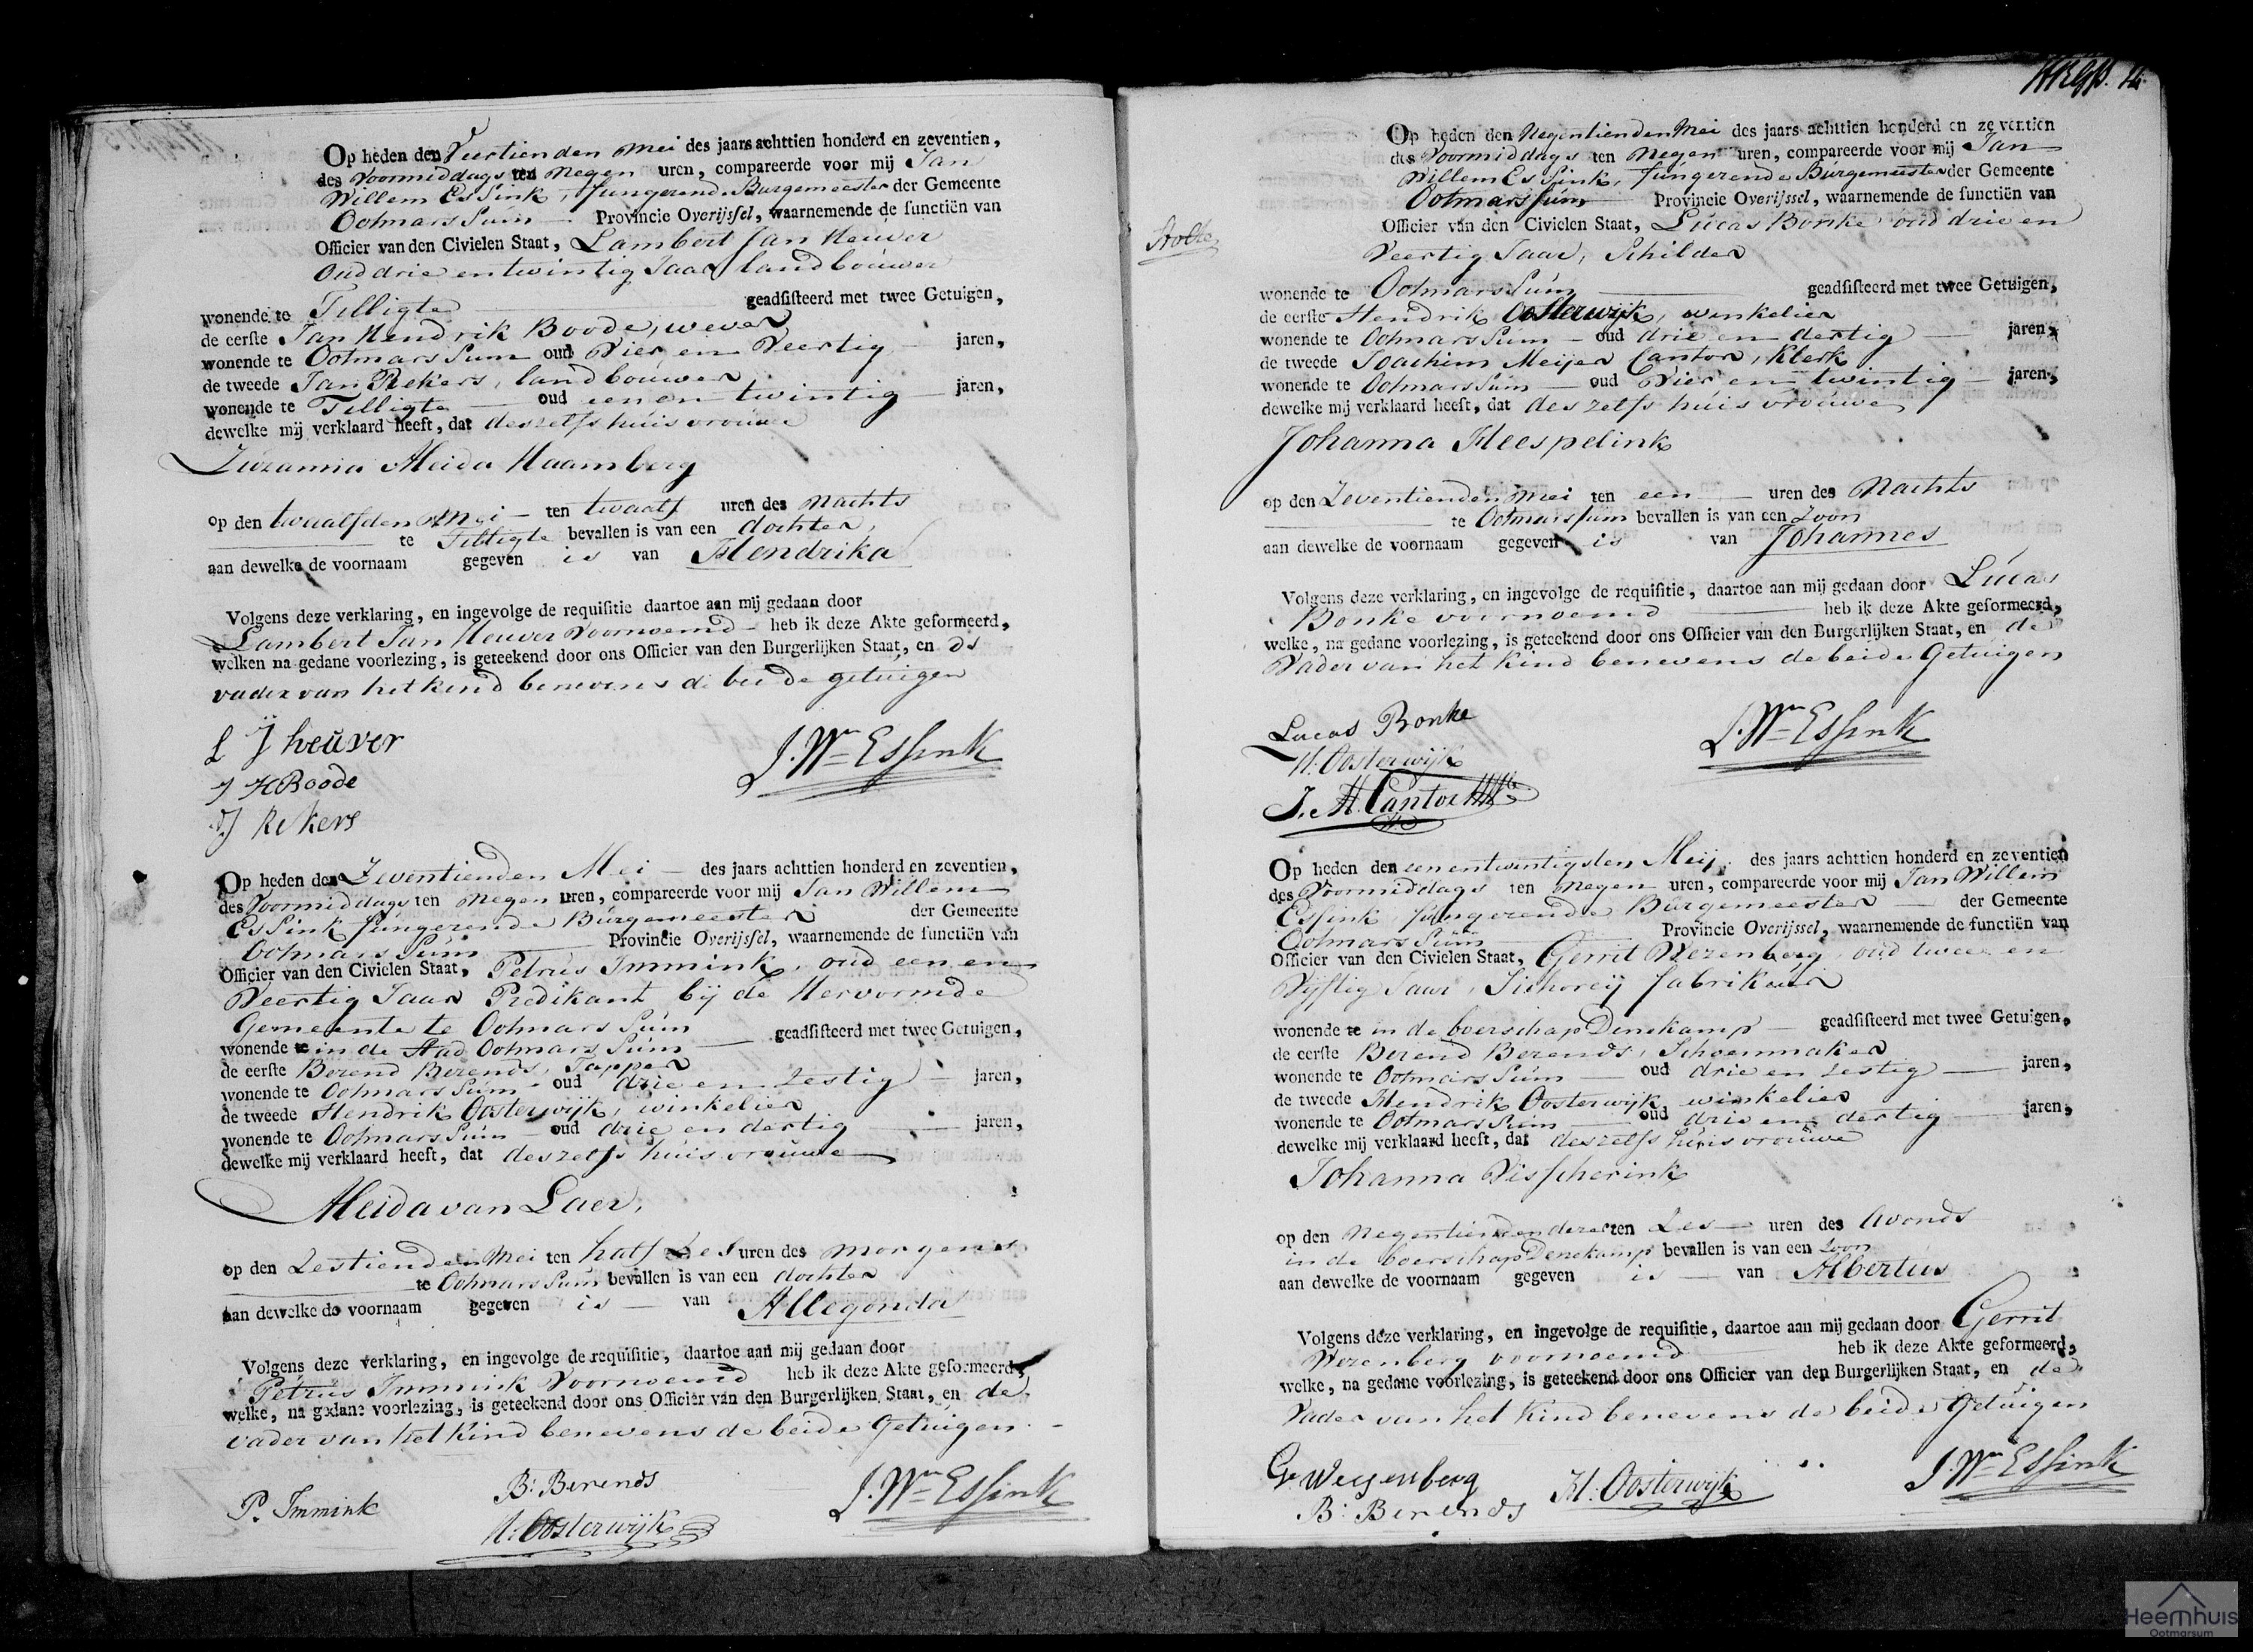 Op heden den Veertienden Mei des jaars achttien honderd en zeventien,
des Voormiddags ten Negen uren, compareerde voor mij Jan
Willem Essink, fungerende Burgemeester der Gemeente
Ootmarssum Provincie Overijssel, waarnemende de functiën van
Officier van den Civielen Staat, Lambert Jan Heuver
Oud drie en twintig Jaar, landbouwer
wonende te Tilligte geadsisteerd met twee Getuigen,
de eerste Jan Hendrik Boode, wever
wonende te Ootmarssum oud Vier en Veertig jaren,
de tweede Jan Rekers, landbouwer
wonende te Tilligte oud een en twintig jaren,
dewelke mij verklaard heeft, dat deszelfs huisvrouwe
Zuzanna Aleida Haamberg
op den twaalfden Mei ten twaalf uren des Nachts
te Tilligte bevallen is van een dochter,
aan dewelke de voornaam gegeven is van Hendrika
Volgens deze verklaring, en ingevolge de requisitie daartoe aan mij gedaan door
Lambert Jan Heuver Voornoemd heb ik deze Akte geformeerd,
welken na gedane voorlezing, is geteekend door ons Officier van den Burgerlijken Staat, en de
vader van het kind benevens de beide getuigen
L J heuver
J. Wm Essink
J H Boode
J Rekers
Op heden den Zeventienden Mei des jaars achttien honderd en zeventien,
des Voormiddags ten Negen uren, compareerde voor mij Jan Willem
Essink fungerende Burgemeester der Gemeente
Ootmarssum Provincie Overijssel, waarnemende de functiën van
Officier van den Civielen Staat, Petrus Immink, oud een en
Veertig Jaar Predikant bij de Hervormde
Gemeente te Ootmarssum
wonende te in de Stad Ootmarssum geadsisteerd met twee Getuigen,
de eerste Berend Berends, Tapper
wonende te Ootmarssum oud drie en Zestig jaren,
de tweede Hendrik Oosterwijk, winkelier
wonende te Ootmarssum oud drie en dertig jaren,
dewelke mij verklaard heeft, dat deszelfs huisvrouwe
Aleida van Laer,
op den Zestienden Mei ten half Zes uren des Morgens
te Ootmarssum bevallen is van een dochter
aan dewelke de voornaam gegeven is van Allegonda
Volgens deze verklaring, en ingevolge de requisitie, daartoe aan mij gedaan door
Petrus Immink Voornoemd heb ik deze Akte geformeerd,
welke, na gedane voorlezing, is geteekend door ons Officier van den Burgerlijken Staat, en de
vader van het Kind benevens de beide Getuigen
P. Immink
B: Berends
J. Wm Essink
H: Oosterwijk
Op heden den Negentienden Mei des jaars achttien honderd en zeventien
des Voormiddags ten Negen uren, compareerde voor mij Jan
Willem Essink, fungerende Burgemeester der Gemeente
Ootmarssum Provincie Overijssel, waarnemende de functiën van
Officier van den Civielen Staat, Lucas Bonke oud drie en
Veertig Jaar, Schilder
wonende te Ootmarssum geadsisteerd met twee Getuigen,
de eerste Hendrik Oosterwijk, winkelier
wonende te Ootmarssum oud drie en dertig jaren,
de tweede Joachim Meijer Cantor, Klerk
wonende te Ootmarssum oud Vier en twintig jaren,
dewelke mij verklaard heeft, dat deszelfs huisvrouwe
Johanna Heespelink
op den Zeventienden Mei ten een uren des Nachts
te Ootmarssum bevallen is van een Zoon
aan dewelke de voornaam gegeven is van Johannes
Volgens deze verklaring, en ingevolge de requisitie, daartoe aan mij gedaan door Lucas
Bonke voornoemd heb ik deze Akte geformeerd,
welke, na gedane voorlezing, is geteekend door ons Officier van den Burgerlijken Staat, en de
Vader van het Kind benevens de beide Getuigen
Lucas Bonke
J. Wm Essink
H: Oosterwijk
J. M. Cantor
Op heden den een en twintigsten Meij des jaars achttien honderd en zeventien
des Voormiddags ten Negen uren, compareerde voor mij Jan Willem
Essink fungerende Burgemeester der Gemeente
Ootmarssum Provincie Overijssel, waarnemende de functiën van
Officier van den Civielen Staat, Gerrit Wezenberg oud twee en
Vijftig Jaar, Sichoreij fabrikeur
wonende te in de boerschap Denekamp geadsisteerd met twee Getuigen,
de eerste Berend Berends, Schoenmaker
wonende te Ootmarssum oud drie en zestig jaren,
de tweede Hendrik Oosterwijk winkelier
wonende te Ootmarssum oud drie en dertig jaren,
dewelke mij verklaard heeft, dat deszelfs huisvrouwe
Johanna Visscherink
op den Negentienden dezer ten Zes uren des Avonds
in de boerschap Denekamp bevallen is van een Zoon
aan dewelke de voornaam gegeven is van Albertus
Volgens deze verklaring, en ingevolge de requisitie, daartoe aan mij gedaan door Gerrit
Wezenberg voornoemd heb ik deze Akte geformeerd,
welke, na gedane voorlezing, is geteekend door ons Officier van den Burgerlijken Staat, en de
Vader van het Kind benevens de beide Getuigen
G. Wezenberg
H: Oosterwijk
J. Wm Essink
B: Berends
Heemhuis
Ootmarsum